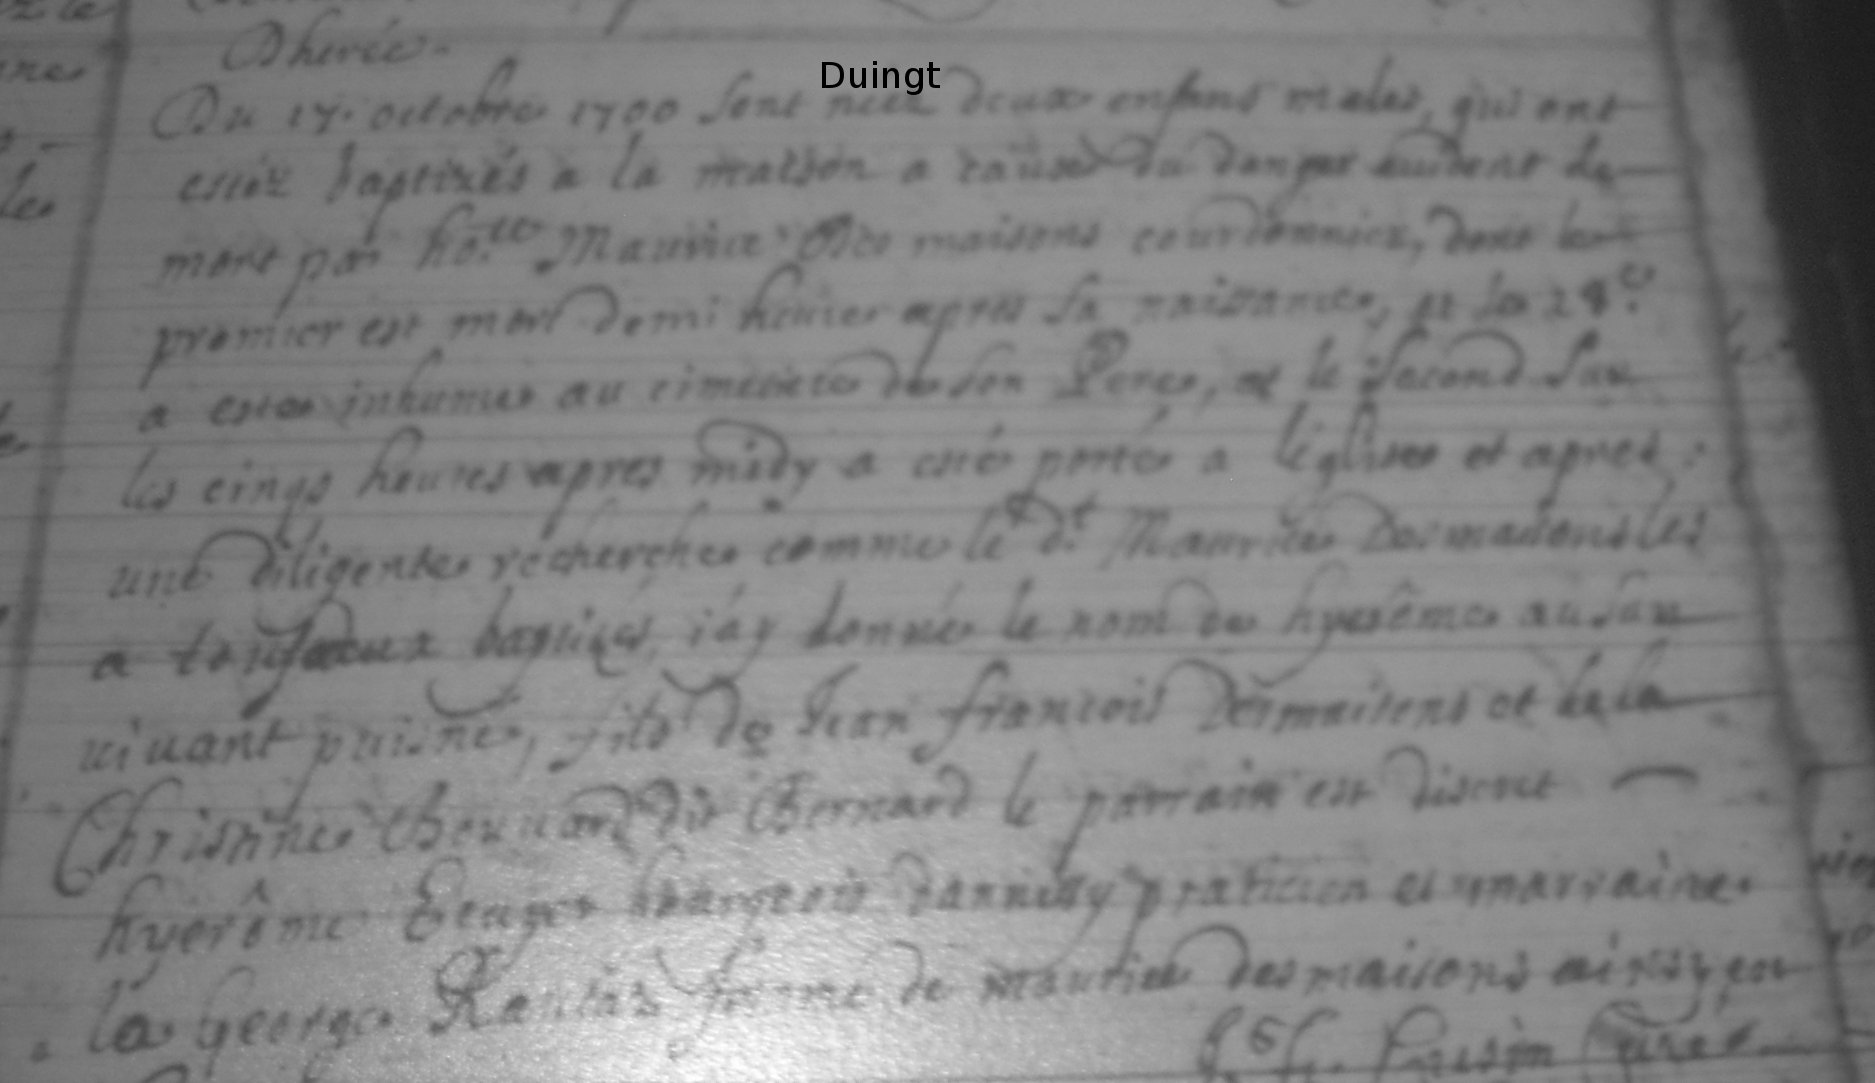 Dherée.
Duingt
Du 17. octobre 1700 sont néez deux enfans males, qui ont
estéz baptizés a la maison a cause du danger euident de
mort par ho.te Maurice Des maisons courdonnier, dont le
premier est mort demi heure apres sa naissance, et le 18.e
a esté inhumé au cimetiere de son Pere, et le second sur
les cinqs heures apres midy a esté porté a l'églises et apres
une diligente recherche comme le d.t Maurice Desmaisons les
a tous deux baptizés, i'ay donné le nom de hyerême au sur
uiuant puisné, fils de Jean françois Desmaisons et de la
Christine dit Bernard le parrain est discret
hyerême bourgeois d'annessy praticien et marraine
la George femme de maurice desmaisons ainsy en
Curé